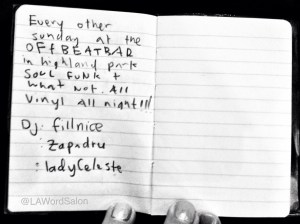 Every other
sunday at the
OFFBEATBAR
in highland park
Soul Funk +
what not. All
Vinyl All night!!!
Dj: fillnice
: Zapadru
: ladyCeleste
@LAWordSalon